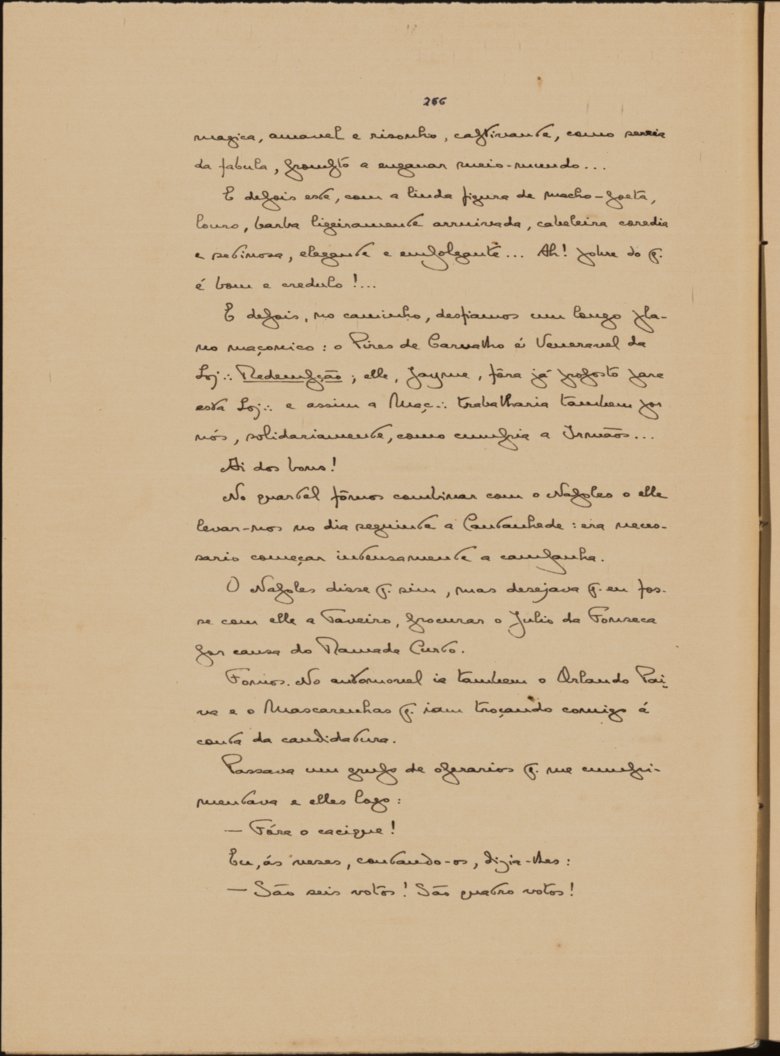 266
magica, amavel e risonho, captivante, como sereia
da fabula, prompto a enganar meio-mundo...
E depois este, com a linda figura de macho-poeta,
louro, barba ligeiramente arruivada, cabeleira coredia
e setinosa, elegante e empolgante... Ah! pobre do q.
é bom e credulo!...
E depois, no caminho, desfiamos um longo pla-
no maçonico: o Pires de Carvalho é Veneravel da
Loj∴ Redempção; elle, Jayme, fôra já proposto para
esta Loj∴ e assim a Maç∴ trabalharia tambem por
nós, solidariamente, como cumpria a Irmãos...
Ai dos bons!
No quartel fômos combinar com o Napoles o elle
levar-nos no dia seguinte a Cantanhede: era neces-
sario começar intensamente a campanha.
O Napoles disse q. sim, mas desejava q. eu fos-
se com elle a Taveiro, procurar o Julio da Fonseca
por causa do Ramada Curto.
Fomos. No automovel ia tambem o Orlando Pai-
va e o Mascarenhas q. iam troçando comigo á
conta da candidatura.
Passava um grupo de operarios q. me cumpri-
mentava e elles logo:
— Fóra o cacique!
Eu, ás veses, contando-os, dizia-lhes:
— São seis votos! São quatro votos!